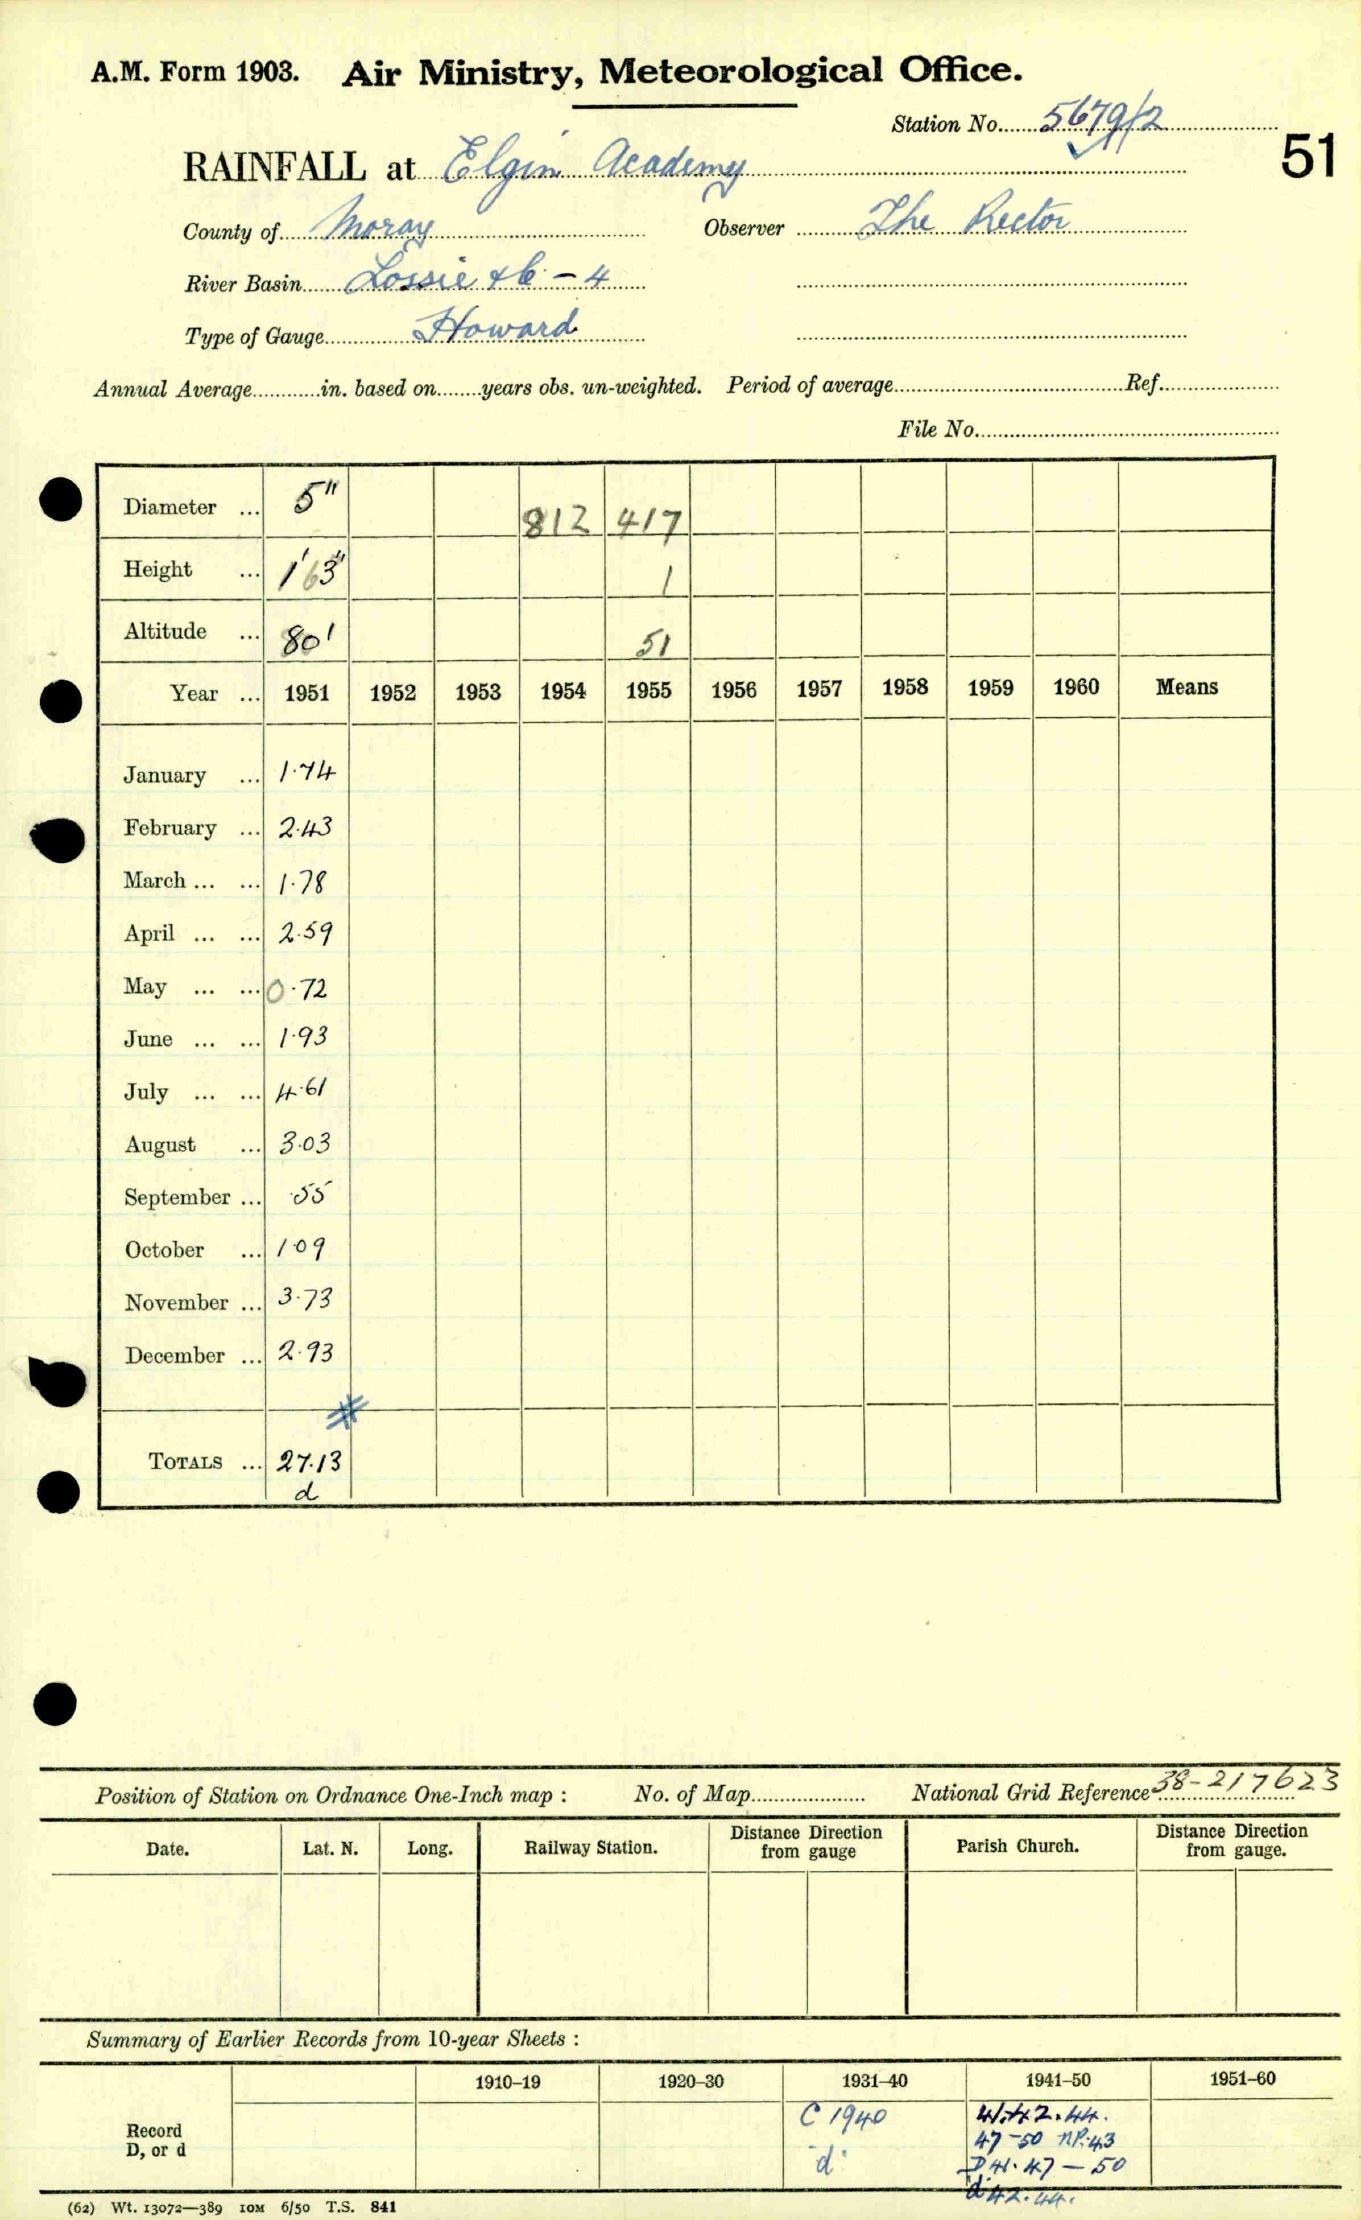 A.M. Form 1903. Air Ministry, Meteorological Office.
Station No. 5679/2
51
RAINFALL at Elgin Academy
County of Moray Observer The Rector
River Basin Lossie &c - 4
Type of Gauge Howard
Annual Average............in. based on........years obs. un-weighted. Period of average............Ref.............
File No.............
Diameter ... 5" 812 417
Height ... 1' 3" 1
Altitude ... 80' 51
Year ... 1951 1952 1953 1954 1955 1956 1957 1958 1959 1960 Means
January ... 1.74
February ... 2.43
March ... ... 1.78
April ... ... 2.59
May ... ... 0.72
June ... ... 1.93
July ... ... 4.61
August ... 3.03
September ... .55
October ... 1.09
November ... 3.73
December ... 2.93
#
TOTALS ... 27.13
d
Position of Station on Ordnance One-Inch map : No. of Map............ National Grid Reference 38-217623
Date. Lat. N. Long. Railway Station. Distance from Direction gauge Parish Church. Distance from Direction gauge.
Summary of Earlier Records from 10-year Sheets :
1910–19 1920–30 1931–40 1941–50 1951–60
Record D, or d
C 1940
d
41.42.44.
47-50 NP.43
D 41. 47 - 50
d 42.44.
(62) Wt. 13072—389 10M 6/50 T.S. 841